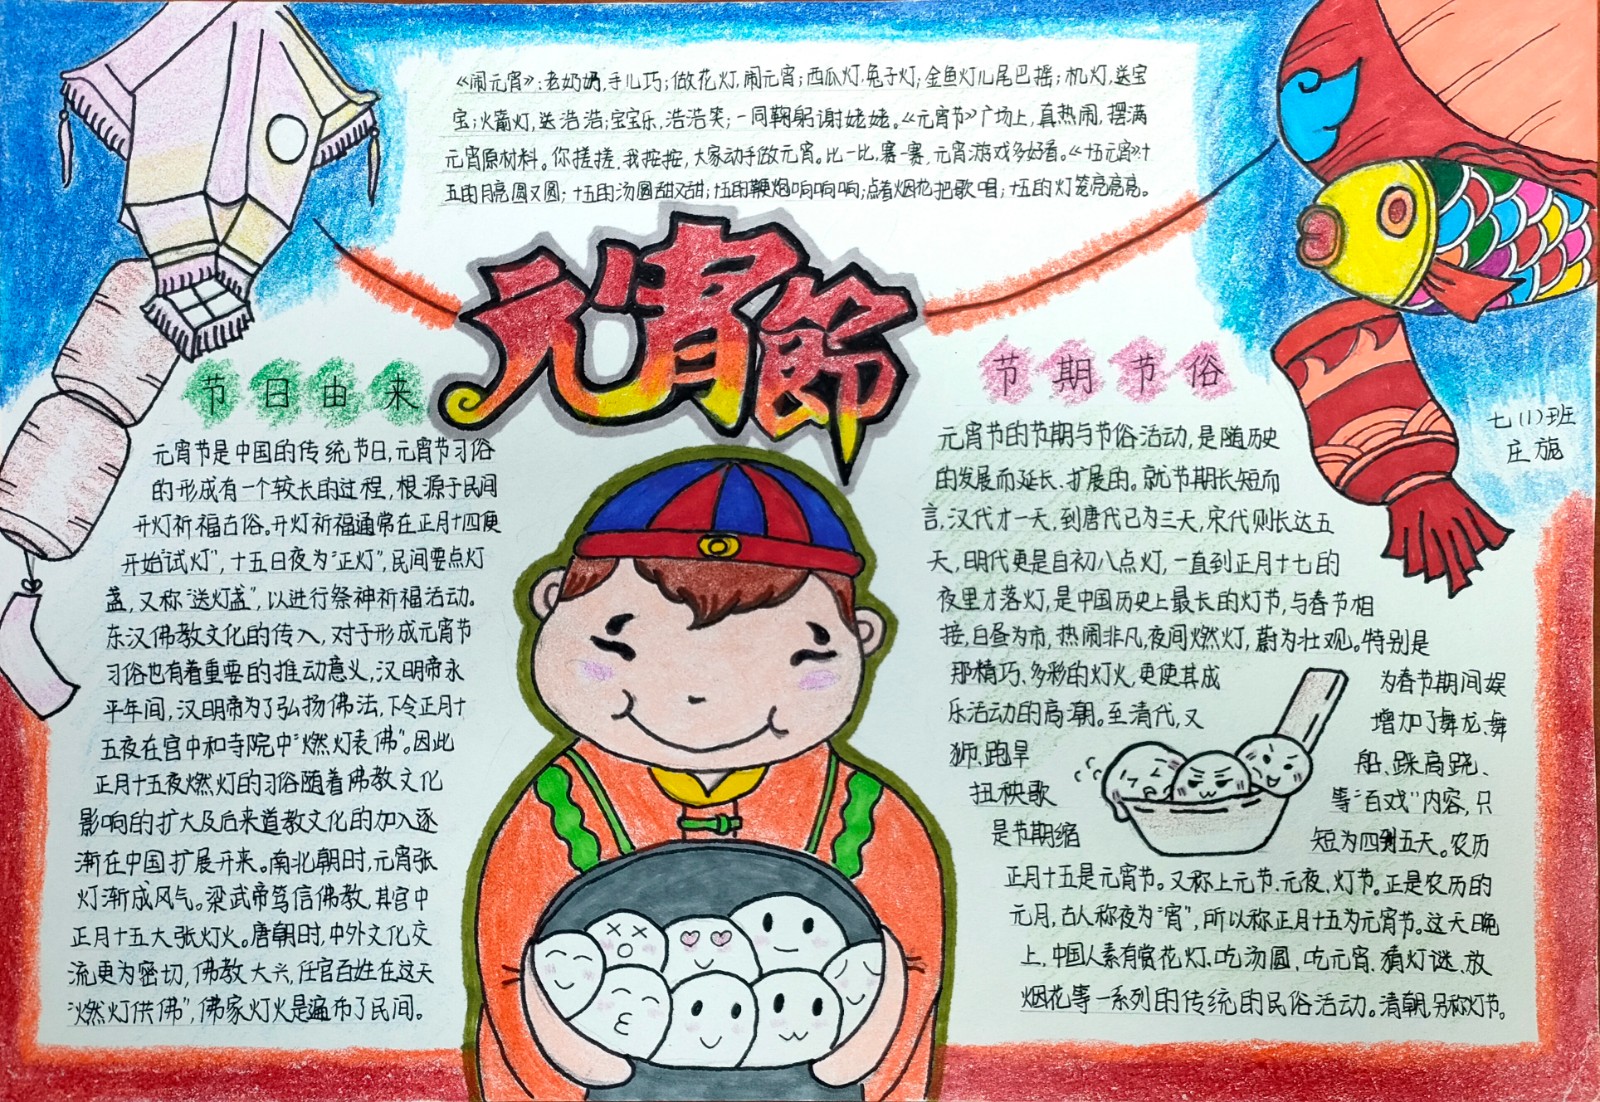 《闹元宵》:老奶奶,手儿巧;做花灯,闹元宵;西瓜灯,兔子灯;金鱼灯儿尾巴摇;机灯,送宝
宝;火箭灯,送浩浩;宝宝乐,浩浩笑;一同鞠躬谢姥姥。《元宵节》广场上,真热闹,摆满
元宵原材料。你搓搓,我按按,大家动手做元宵。比一比,赛一赛,元宵游戏多好看。《十五元宵》:十
五的月亮圆又圆;十五的汤圆甜又甜;十五的鞭炮响响响;点着烟花把歌唱;十五的灯笼亮亮亮。
元宵節
节日由来
元宵节是中国的传统节日,元宵节习俗
的形成有一个较长的过程,根源于民间
开灯祈福古俗。开灯祈福通常在正月十四便
开始"试灯",十五日夜为"正灯",民间要点灯
盏,又称"送灯盏",以进行祭神祈福活动。
东汉佛教文化的传入,对于形成元宵节
习俗也有着重要的推动意义,汉明帝永
平年间,汉明帝为了弘扬佛法,下令正月十
五夜在宫中和寺院中"燃灯表佛"。因此
正月十五夜燃灯的习俗随着佛教文化
影响的扩大及后来道教文化的加入逐
渐在中国扩展开来。南北朝时,元宵张
灯渐成风气。梁武帝笃信佛教,其宫中
正月十五大张灯火。唐朝时,中外文化交
流更为密切,佛教大兴,任官百姓在这天
"燃灯供佛",佛家灯火是遍布了民间。
节期节俗
元宵节的节期与节俗活动,是随历史
的发展而延长、扩展的。就节期长短而
言,汉代才一天,到唐代已为三天,宋代则长达五
天,明代更是自初八点灯,一直到正月十七的
夜里才落灯,是中国历史上最长的灯节,与春节相
接,白昼为市,热闹非凡,夜间燃灯,蔚为壮观。特别是
那精巧、多彩的灯火,更使其成 为春节期间娱
乐活动的高潮。至清代,又 增加了舞龙、舞
狮、跑旱 船、踩高跷、
扭秧歌 等"百戏"内容,只
是节期缩 短为四到五天。农历
正月十五是元宵节。又称上元节、元夜、灯节。正是农历的
元月,古人称夜为"宵",所以称正月十五为元宵节。这天晚
上,中国人素有赏花灯、吃汤圆、吃元宵、猜灯谜、放
烟花等一系列的传统的民俗活动。清朝,另称灯节。
七(1)班
庄施